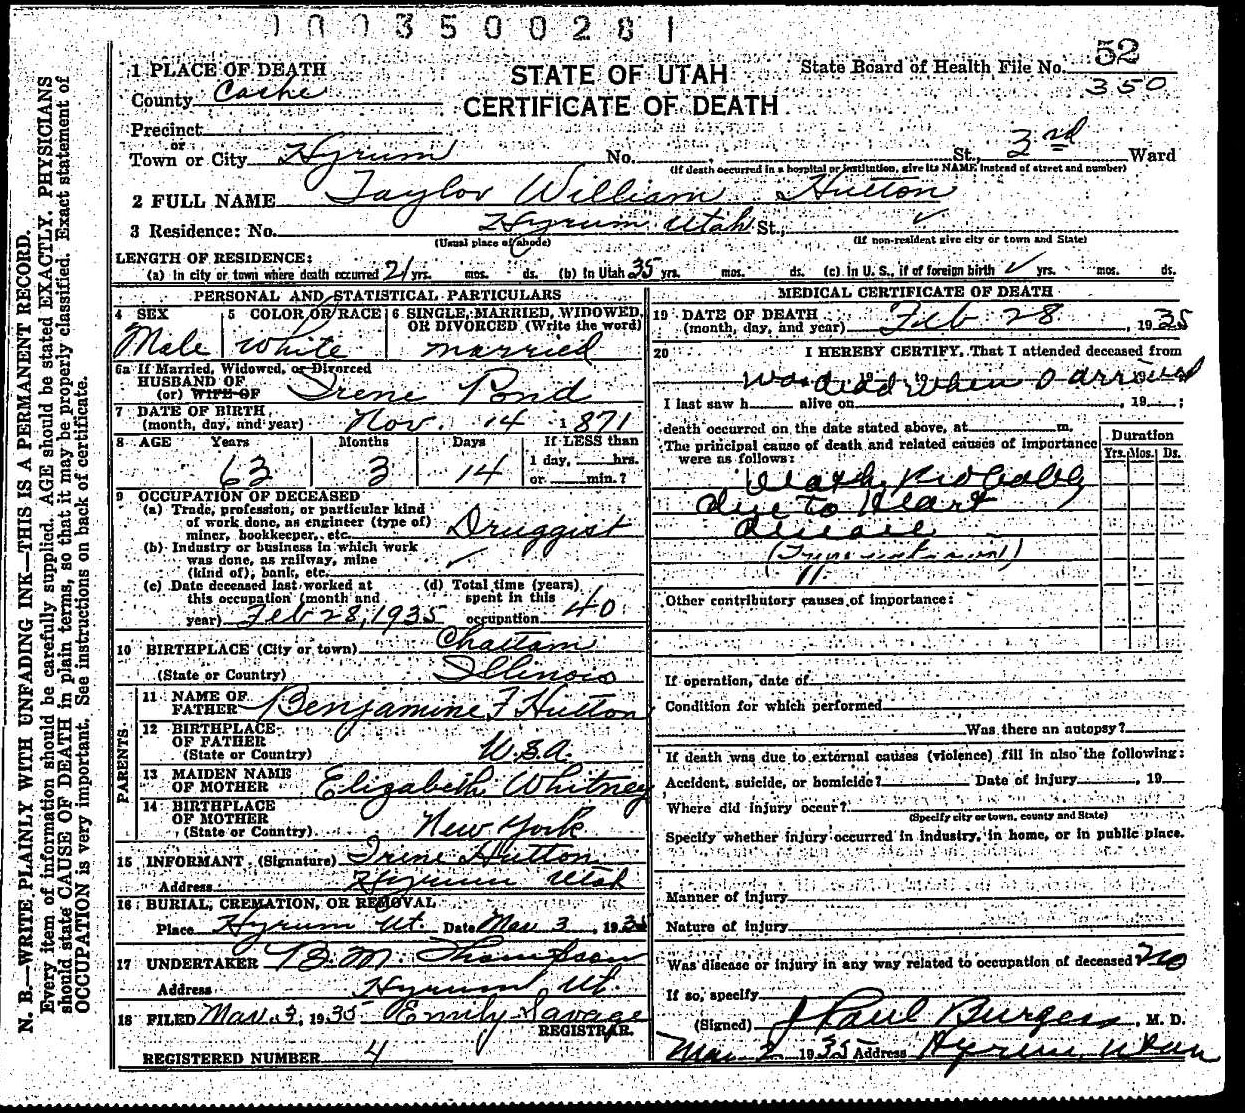 1003500281
1 PLACE OF DEATH
STATE OF UTAH
State Board of Health File No. 52
County Cache
CERTIFICATE OF DEATH
350
Precinct
or
Town or City Hyrum No. St., 3rd Ward
(If death occurred in a hospital or institution, give its NAME instead of street and number)
2 FULL NAME Taylor William Hutton
3 Residence: No. Hyrum Utah St.,
(Usual place of abode) (If non-resident give city or town and State)
LENGTH OF RESIDENCE:
(a) In city or town where death occurred 21 yrs. mos. ds. (b) In Utah 35 yrs. mos. ds. (c) In U. S., if of foreign birth ✓ yrs. mos. ds.
PERSONAL AND STATISTICAL PARTICULARS
4 SEX 5 COLOR OR RACE 6 SINGLE, MARRIED, WIDOWED,
OR DIVORCED (Write the word)
Male White married
6a If Married, Widowed, or Divorced
HUSBAND OF
(or) WIFE OF Irene Pond
7 DATE OF BIRTH
(month, day, and year) Nov. 14 1871
8 AGE Years Months Days If LESS than
1 day, hrs.
or min.?
63 3 14
9 OCCUPATION OF DECEASED
(a) Trade, profession, or particular kind
of work done, as engineer (type of)
miner, bookkeeper, etc. Druggist
(b) Industry or business in which work
was done, as railway, mine
(kind of), bank, etc.
(c) Date deceased last worked at
this occupation (month and
year) Feb 28, 1935
(d) Total time (years)
spent in this
occupation 40
10 BIRTHPLACE (City or town) Chattam
(State or Country) Illinois
PARENTS
11 NAME OF
FATHER Benjamine F Hutton
12 BIRTHPLACE
OF FATHER
(State or Country) U.S.A.
13 MAIDEN NAME
OF MOTHER Elizabeth Whitney
14 BIRTHPLACE
OF MOTHER
(State or Country) New York
15 INFORMANT (Signature) Irene Hutton
Address Hyrum Utah
16 BURIAL, CREMATION, OR REMOVAL
Place Hyrum Ut. Date Mar 3, 1935
17 UNDERTAKER B. M. Thompson
Address Hyrum Ut.
18 FILED Mar. 3, 1935 Emily Savage
REGISTRAR.
REGISTERED NUMBER 4
MEDICAL CERTIFICATE OF DEATH
19 DATE OF DEATH
(month, day, and year) Feb 28, 1935
20 I HEREBY CERTIFY, That I attended deceased from
Was dead when I arrived
I last saw h alive on , 19 ;
death occurred on the date stated above, at m.
The principal cause of death and related causes of importance
were as follows:
Duration
Yrs. Mos. Ds.
Death Probably
due to Heart
disease
(Type unknown)
11
Other contributory causes of importance:
If operation, date of
Condition for which performed
Was there an autopsy?
If death was due to external causes (violence) fill in also the following:
Accident, suicide, or homicide? Date of injury , 19
Where did injury occur?
(Specify city or town, county and State)
Specify whether injury occurred in industry, in home, or in public place.
Manner of injury
Nature of injury
Was disease or injury in any way related to occupation of deceased? no
If so, specify
(Signed) J Paul Burgess, M. D.
Mar 2 1935 Address Hyrum, Utah
N. B.—WRITE PLAINLY WITH UNFADING INK—THIS IS A PERMANENT RECORD.
Every item of information should be carefully supplied. AGE should be stated EXACTLY. PHYSICIANS
should state CAUSE OF DEATH in plain terms, so that it may be properly classified. Exact statement of
OCCUPATION is very important. See instructions on back of certificate.